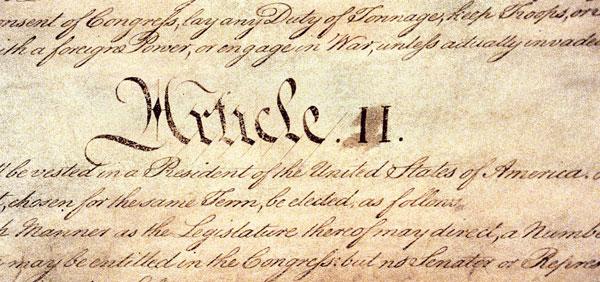 onsent of Congress, lay any Duty of Tonnage, keep Troops, or
ith a foreign Power, or engage in War, unless actually invade
Article. II.
be vested in a President of the United States of America.
, chosen for the same Term, be elected, as follow
Manner as the Legislature thereof may direct, a Numbe
may be entitled in the Congress: but no Senator or Repres